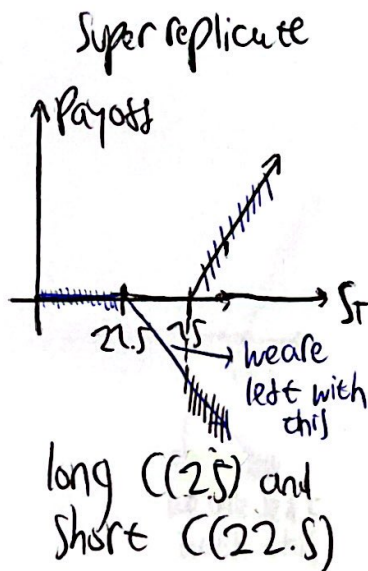 Super replicute
Payoss
22.5 25 ST
we are
left with
this
long C(25) and
short C(22.5)